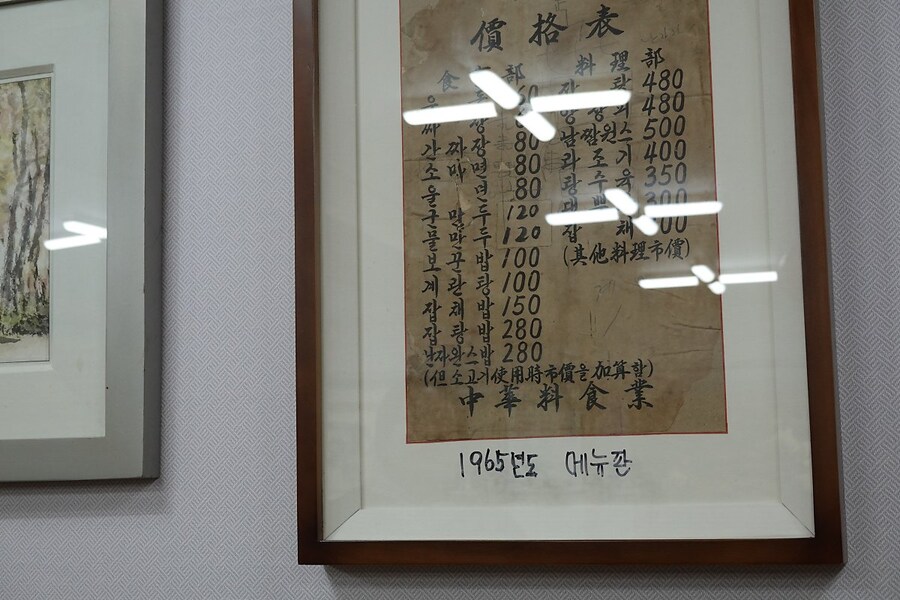 價格表
食 部
60
짜 장
간 짜 장 80
소 마 면 80
울 면 80
군 만 두 120
물 만 두 120
보 꾼 밥 100
계 란 탕 100
잡 채 밥 150
잡 탕 밥 280
난자완스밥 280
(但소고기使用時市價을加算함)
料理部
잡 탕 480
480
남짬원스 500
라 조 기 400
탕 수 육 350
300
잡 채
(其他料理市價)
中華料食業
1965년도 메뉴판